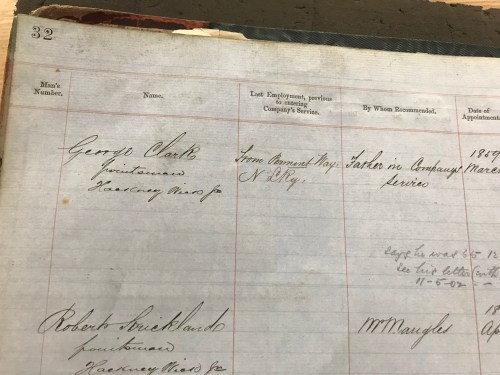 32
Man's
Number.
Name.
Last Employment, previous
to entering
Company's Service.
By Whom Recommended.
Date of
Appointment
George Clark
pointsman
Hackney Wick Jc
from Permnt Way
N L Ry.
Father in Company's
Service
185
Marc
says he was 65 12
see his letter (with
11-5-02
Robert Strickland
pointsman
Hackney Wick Jc
Mr Mangles
18
Ap